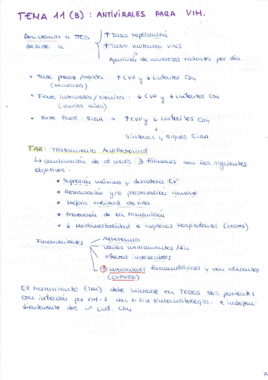 TEMA 11 (B) : ANTIVIRALES PARA VIH.
Resistencia a TTOS debido a
↑ Tasa replicación
↑ Tasa mutación viral
Aparición de numerosas variantes por día
• Fase precoz/aguda : ↑ CVP y ↓ Linfocitos CD4
(semanas)
• Fase intermedia/crónica : ↓ CVP y ↓ Linfocitos CD4
(varios años)
• Fase final : SIDA → ↑ CVP y ↓ Linfocitos CD4
Síntomas y signos SIDA
TAR : Tratamiento Antirretroviral
La combinación de al menos 3 fármacos con los siguientes
objetivos :
• Supresión máxima y duradera CV
• Restauración y/o preservación inmune
• Mejora calidad de vida
• Prevención de la transmisión
• ↓ Morbimortalidad e ingresos hospitalarios
Adherencia
efectos indeseables
El tratamiento (TAR) debe iniciarse en TODOS los pacientes
con infección por VIH-1 con o sin sintomatología e indepen-
dientemente del nº Linf. CD4